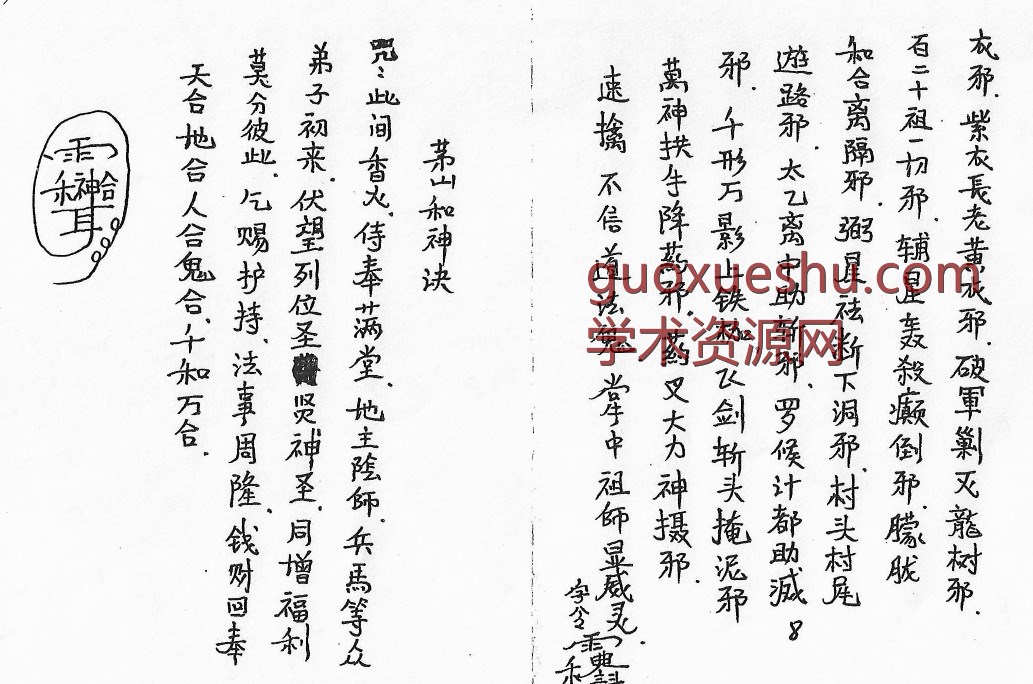 衣邪.紫衣長老黄衣邪.破軍剿灭龍树邪.
百二十祖一切邪.辅星轰殺癫倒邪.朦胧
和合离隔邪.弼星祛断下洞邪.村头村尾
遊路邪.太乙离中助斩邪.罗候计都助滅
8
邪.千形万影山铁 飞剑斩头掩泥邪
萬神拱手降 邪. 叉大力神摄邪.
速擒不信道法 掌中祖師显威灵.
字令
guoxueshu.com
学术资源网
茅山和神诀
咒:此间香火.侍奉满堂.地主陰師.兵馬等众
弟子初来.伏望列位圣贤神圣.同增福利
莫分彼此.乞赐护持.法事周隆.钱财回奉
天合地合人合鬼合.千和万合.